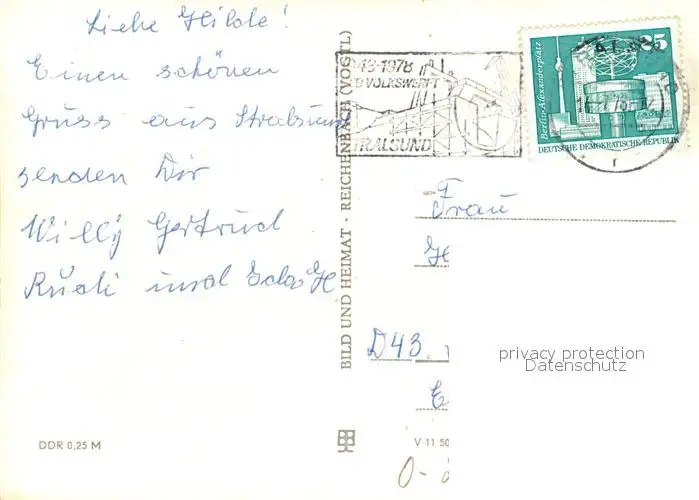 Liebe Hilde!
Einen schönen
Gruss aus Stralsund
senden Dir
Willy Gertrud
Rudi und
BILD UND HEIMAT · REICHENBACH (VOGTL)
1978
VOLKSWERFT
STRALSUND
25
Berlin-Alexanderplatz
DEUTSCHE DEMOKRATISCHE REPUBLIK
Frau
D43.
privacy protection
Datenschutz
DDR 0,25 M
V 11 50